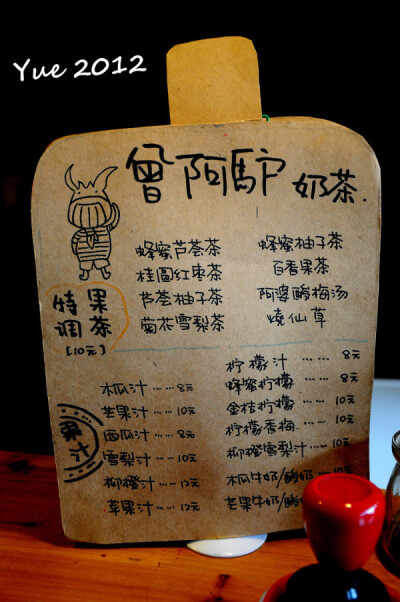 Yue 2012
曾阿驴 奶茶.
蜂蜜芦荟茶
桂圆红枣茶
芦荟柚子茶
菊花雪梨茶
蜂蜜柚子茶
百香果茶
阿婆酸梅汤
烧仙草
特调果茶
[10元]
果汁
木瓜汁……8元
芒果汁……10元
西瓜汁……8元
雪梨汁……10元
柳橙汁……12元
苹果汁……12元
柠檬汁……8元
蜂蜜柠檬……8元
金桔柠檬……10元
柠檬香梅……10元
柳橙雪梨汁……10元
木瓜牛奶/酸奶…10元
芒果牛奶/酸